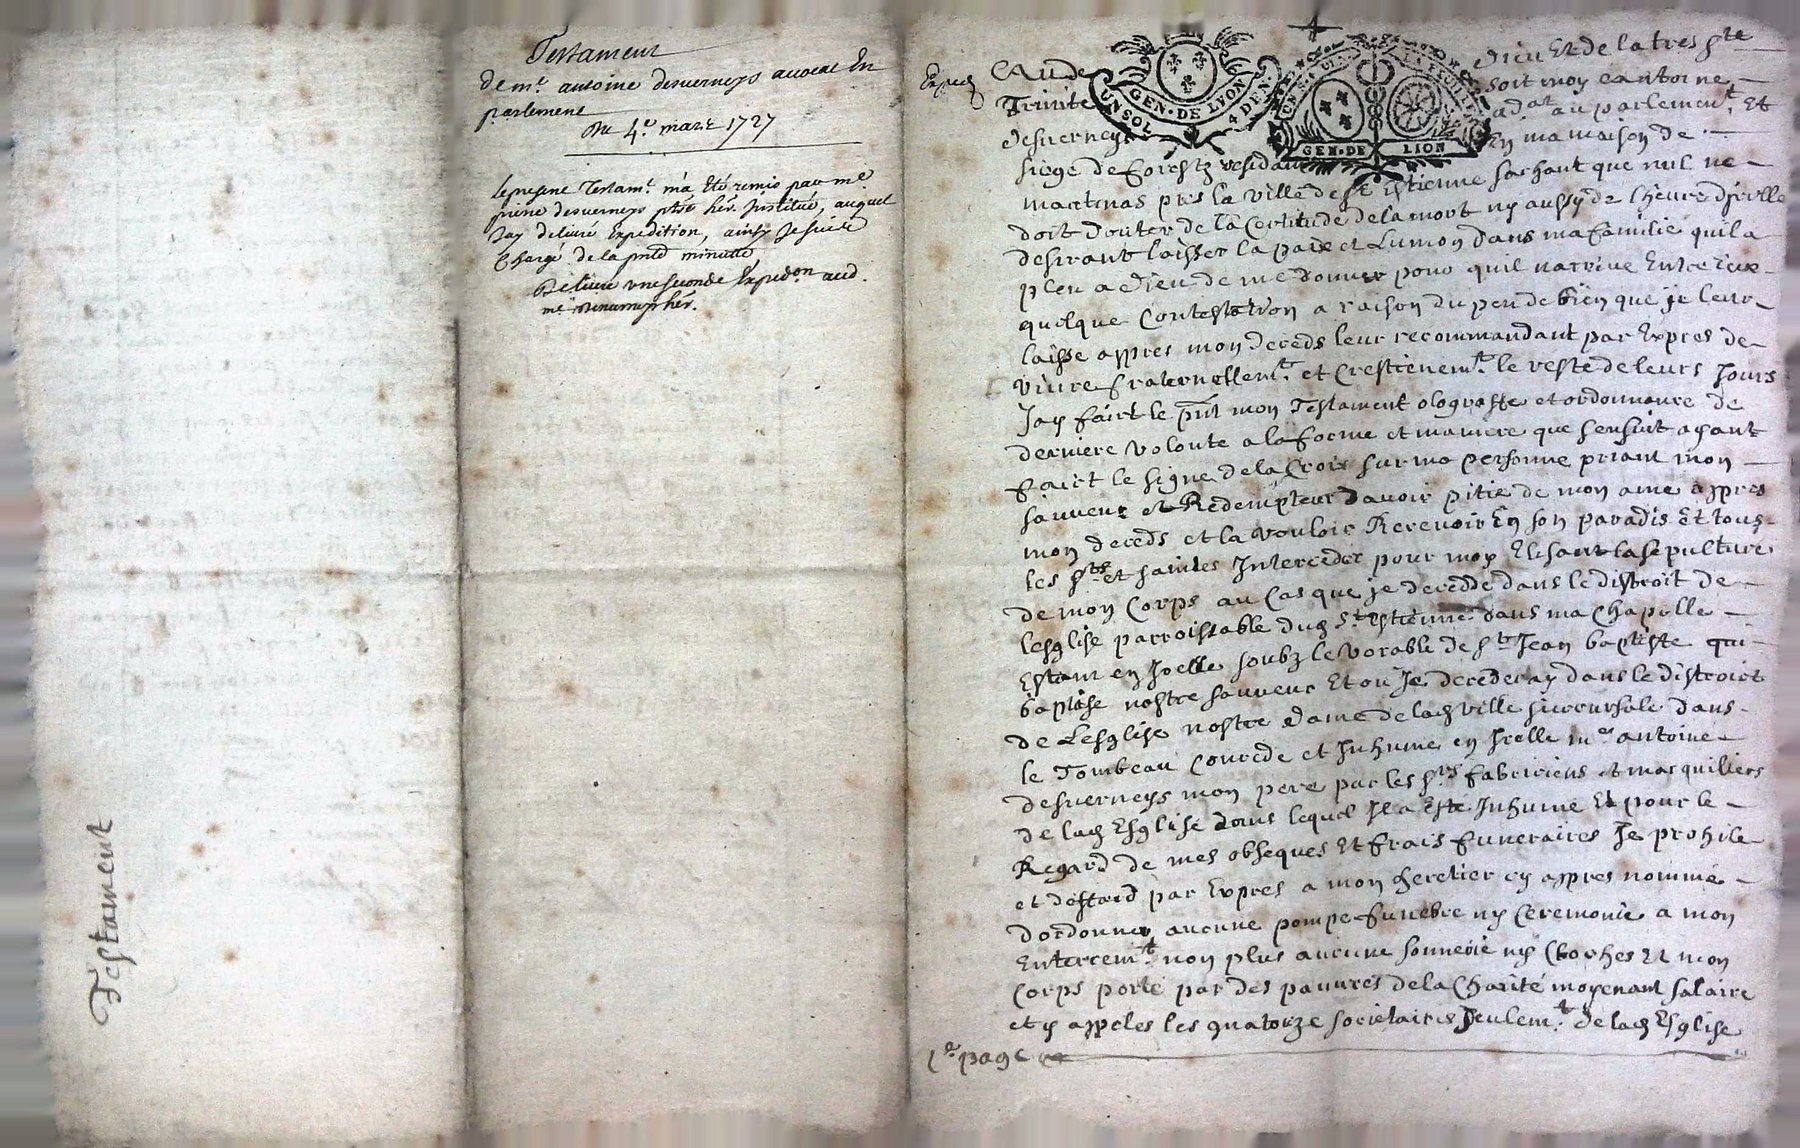 Testament
de mr. antoine desverneys avocat En
parlement
Du 4e. mars 1727
le presene Testamt. m'a Eté remis par me.
prine desverneys pbre hér. Institué, auquel
Jay delivré Expedition, ainsy Je suis
Chargé de la pntd minutte
Delivré une seconde Expedon. aud.
me Desverneys hér.
Testament
Exped
GEN. DE LYON
UN SOL 4 DEN.
GEN. DE LION
Au de Dieu Et de la tres Ste
Trinite soit moy antoine
desverneys adat au parlement Et
siege de forestz residant En ma maison de
martinas pres la ville de St Estienne sachant que nul ne
doit douter de la Certitude de la mort ny aussy de lheure d'icelle
desirant laisser la paix et Lunion dans ma famille quil a
pleu a dieu de me donner pour quil narrive Entre ieux
quelque Contestation a raison du peu de bien que je leur
laisse appres mon deceds leur recommandant par Expres de
vivre fraternellemt. et Crestienemt. le reste de leurs Jours
Jay faict le pnt mon Testament olographe et ordonnance de
derniere volonte a la forme et maniere que sensuit ayant
faict le signe de la Croix sur ma personne priant mon
sauveur et Redempteur davoir pitie de mon ame appres
mon deceds et la vouloir Recevoir En son paradis Et tous
les Sts et saintes Interceder pour moy Elisant la sepulture
de mon Corps au Cas que je decedde dans le distroit de
lesglise parroissable dud St Estienne dans ma Chapelle
Estant en Icelle soubz le vocable de St Jean baptiste qui
baptise nostre sauveur Et ou Je decederay dans le distroict
de Lesglise nostre Dame de lad ville succursale dans
le Tombeau Concede et Inhume en Icelle me antoine
desverneys mon pere par les Srs fabriciens et marguilliers
de lad Esglise dans lequel Il a Esté Inhume Et pour le
Regard de mes obseques Et frais funeraires Je prohibe
et deffand par Expres a mon heretier cy appres nomme
dordonner aucune pompe funebre ny Ceremonie a mon
Enterremt. non plus aucune sonnerie ny Cloches Et mon
Corps porté par des pauvres de la Charité moyenant salaire
et y appeles les quatorze societaires seulemt. de lad Esglise
1e page